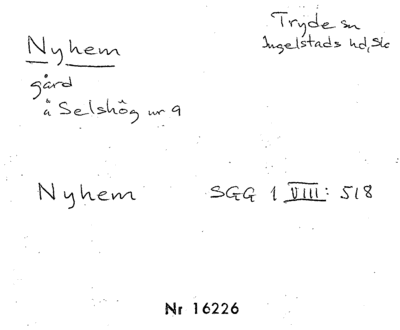 Nyhem
Tryde sn
Ingelstads hd, Sk
gård
å Selshög nr 9
Nyhem SGG 1 VIII: 518
Nr 16226